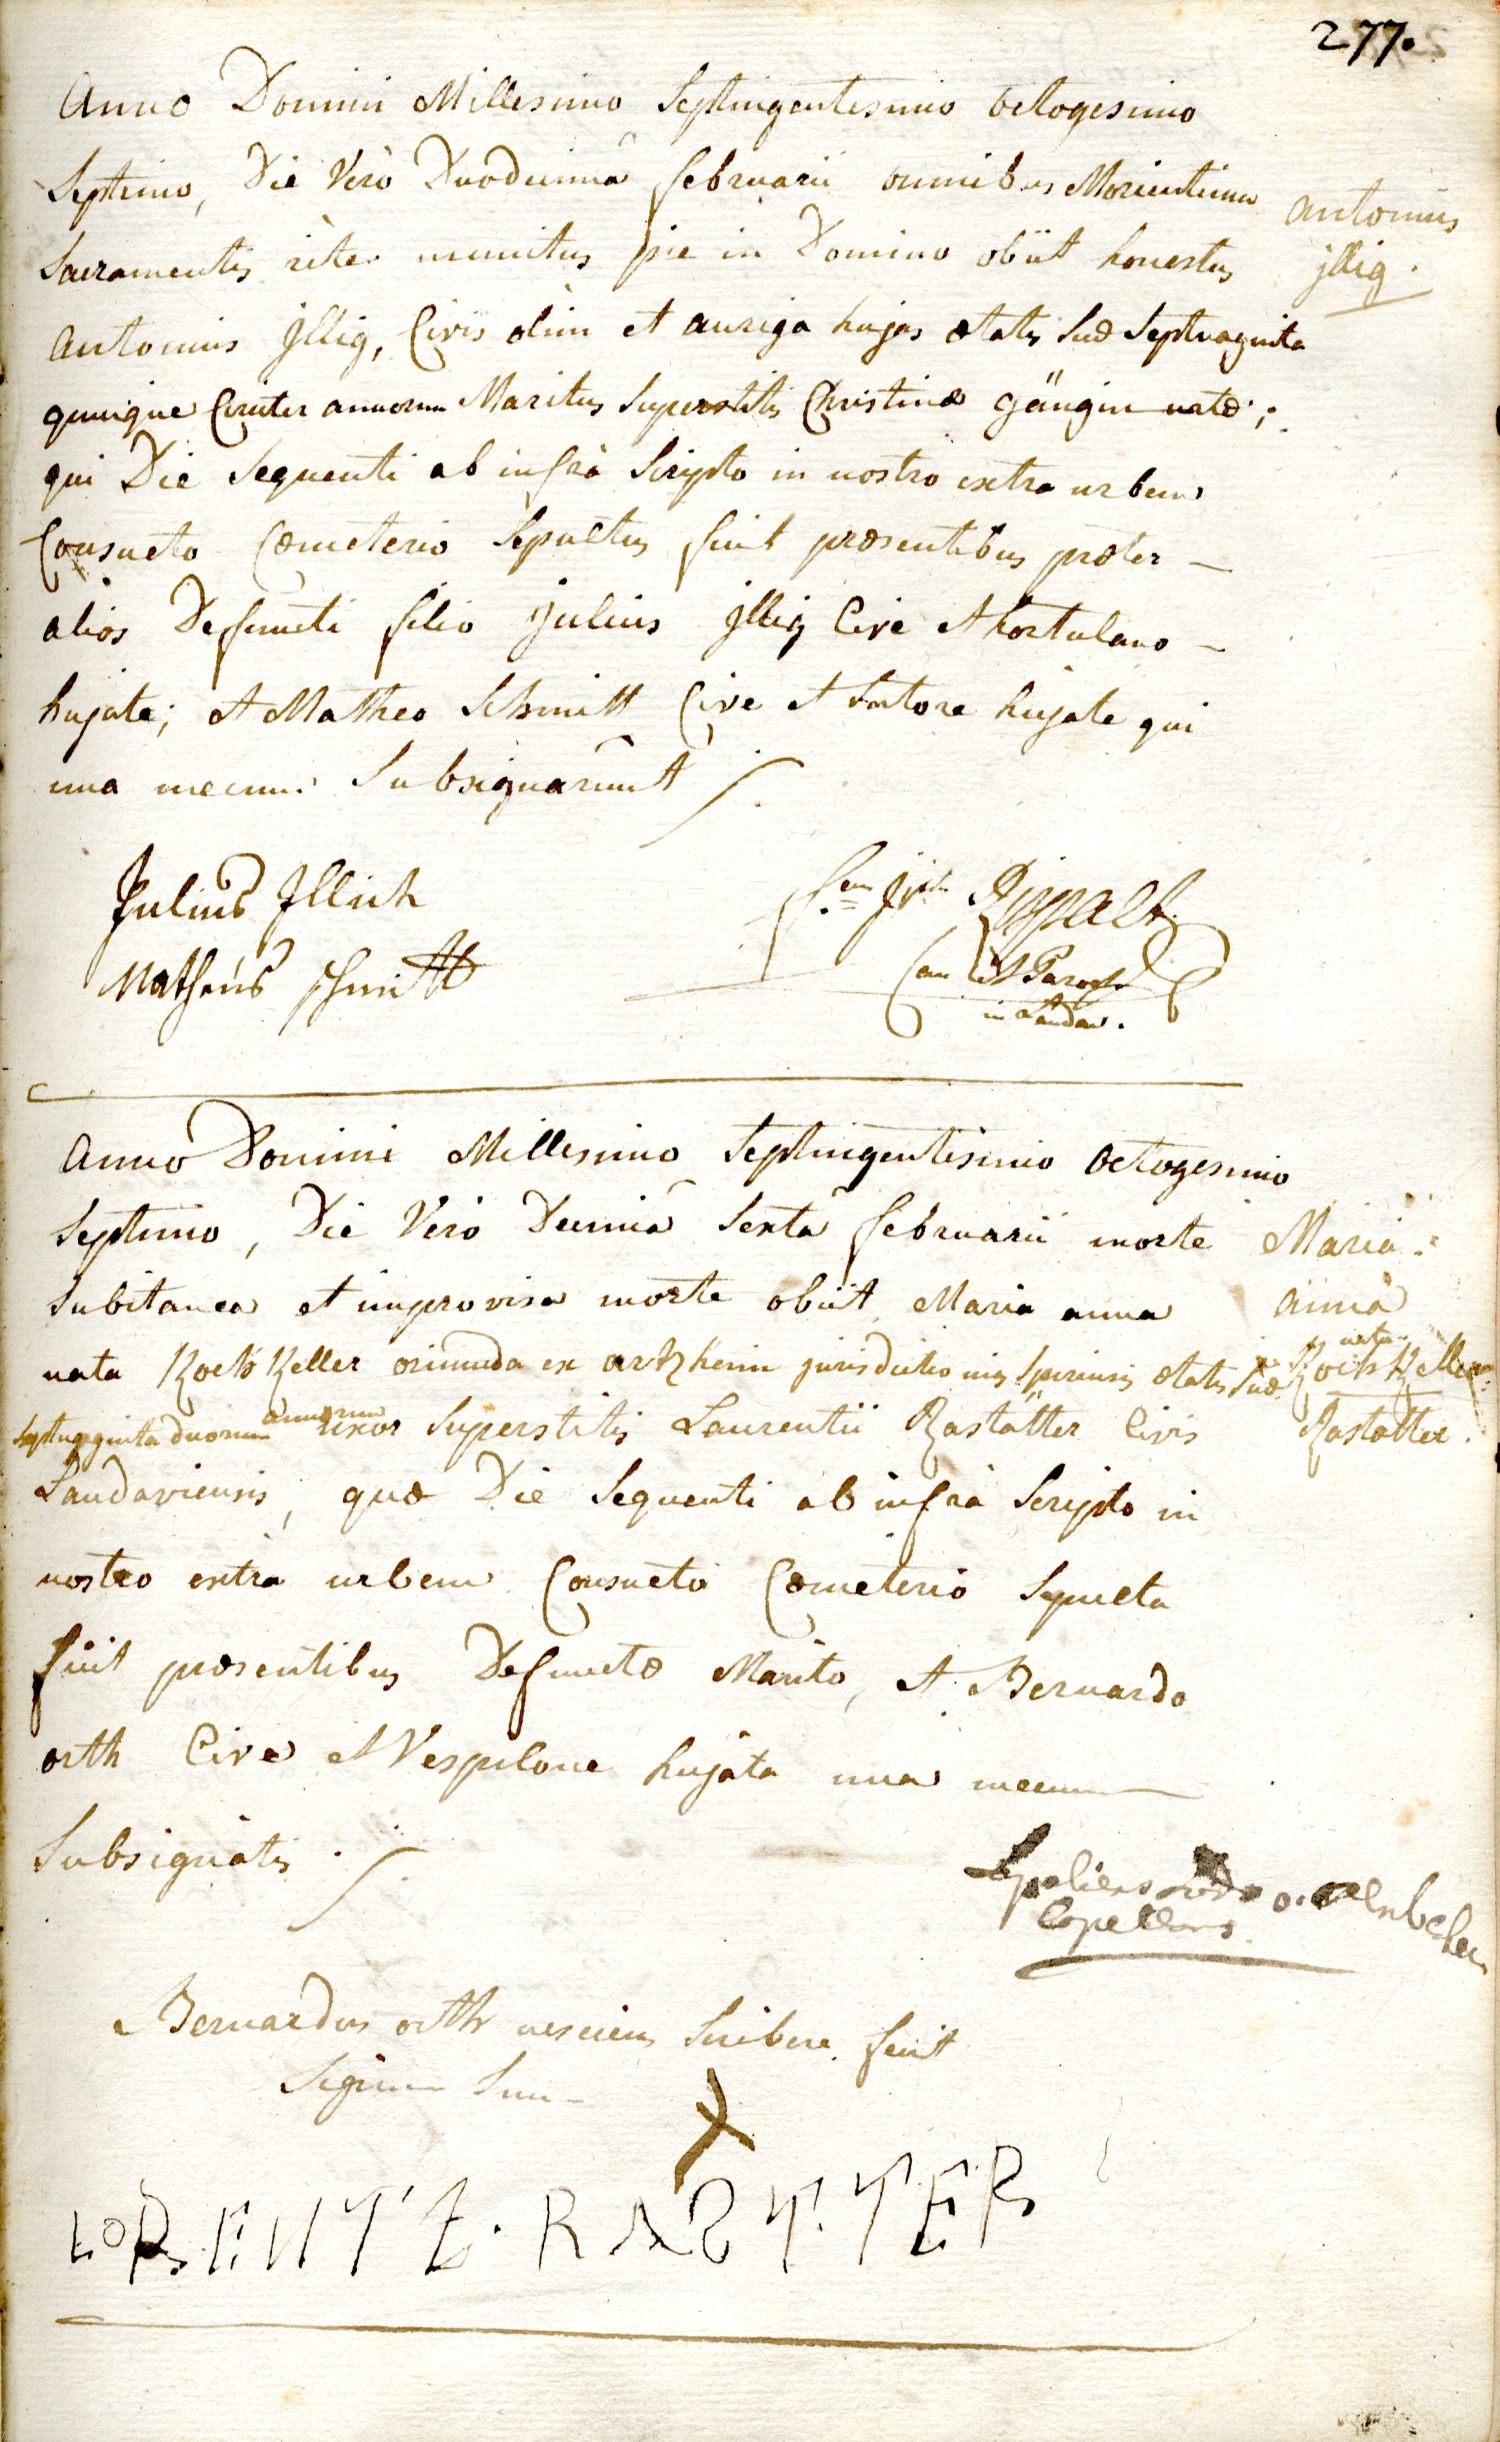 277.
Anno Domini Millesimo Septingentesimo octogesimo
Septimo, Die Verò Duodecimâ februarii omnibus Morientium
Sacramentis ritè munitus pie in Domino obiit honestus
Antonius Jllig, Civis olim et auriga hujas ætatis suæ Septuaginta
quinque Circiter annorum Maritus Superstitis Christinæ gängin natæ;
qui Die Sequenti ab infrà Scripto in nostro extra urbem
Consueto Cœmeterio Sepultus fuit præsentibus præter
alios Defuncti filio Julius Jllig Cive et hortulano
hujate; et Matheo Schmitt Cive et Sutore hujate qui
una mecum Subsignarunt
Antonius
jllig.
Julius Jllich
Matheus schmitt
Rippalt
Can et Paroch
in Landau.
Anno Domini Millesimo Septingentesimo octogesimo
Septimo, Die Verò Decimâ Sextâ februarii morte
Subitanea et improvisa morte obiit Maria anna
nata Koch Keller oriunda ex artzheim jurisdictionis Spirensis ætatis suæ
Septuaginta duorum annorum uxor Superstitis Laurentii Rastätter Civis
Landaviensis, quæ Die Sequenti ab infrà Scripto in
nostro extrà urbem Consueto Cœmeterio Sepulta
fuit præsentibus Defunctæ Marito, et Bernardo
orth Cive et Vespilone hujate una mecum
Subsignatis
Maria
anna
nata
Koch Keller
Rastatter.
Capellanus
Bernardus orth nesciens Scribere fecit
Signum Suum
LORENTZ. RASTTER